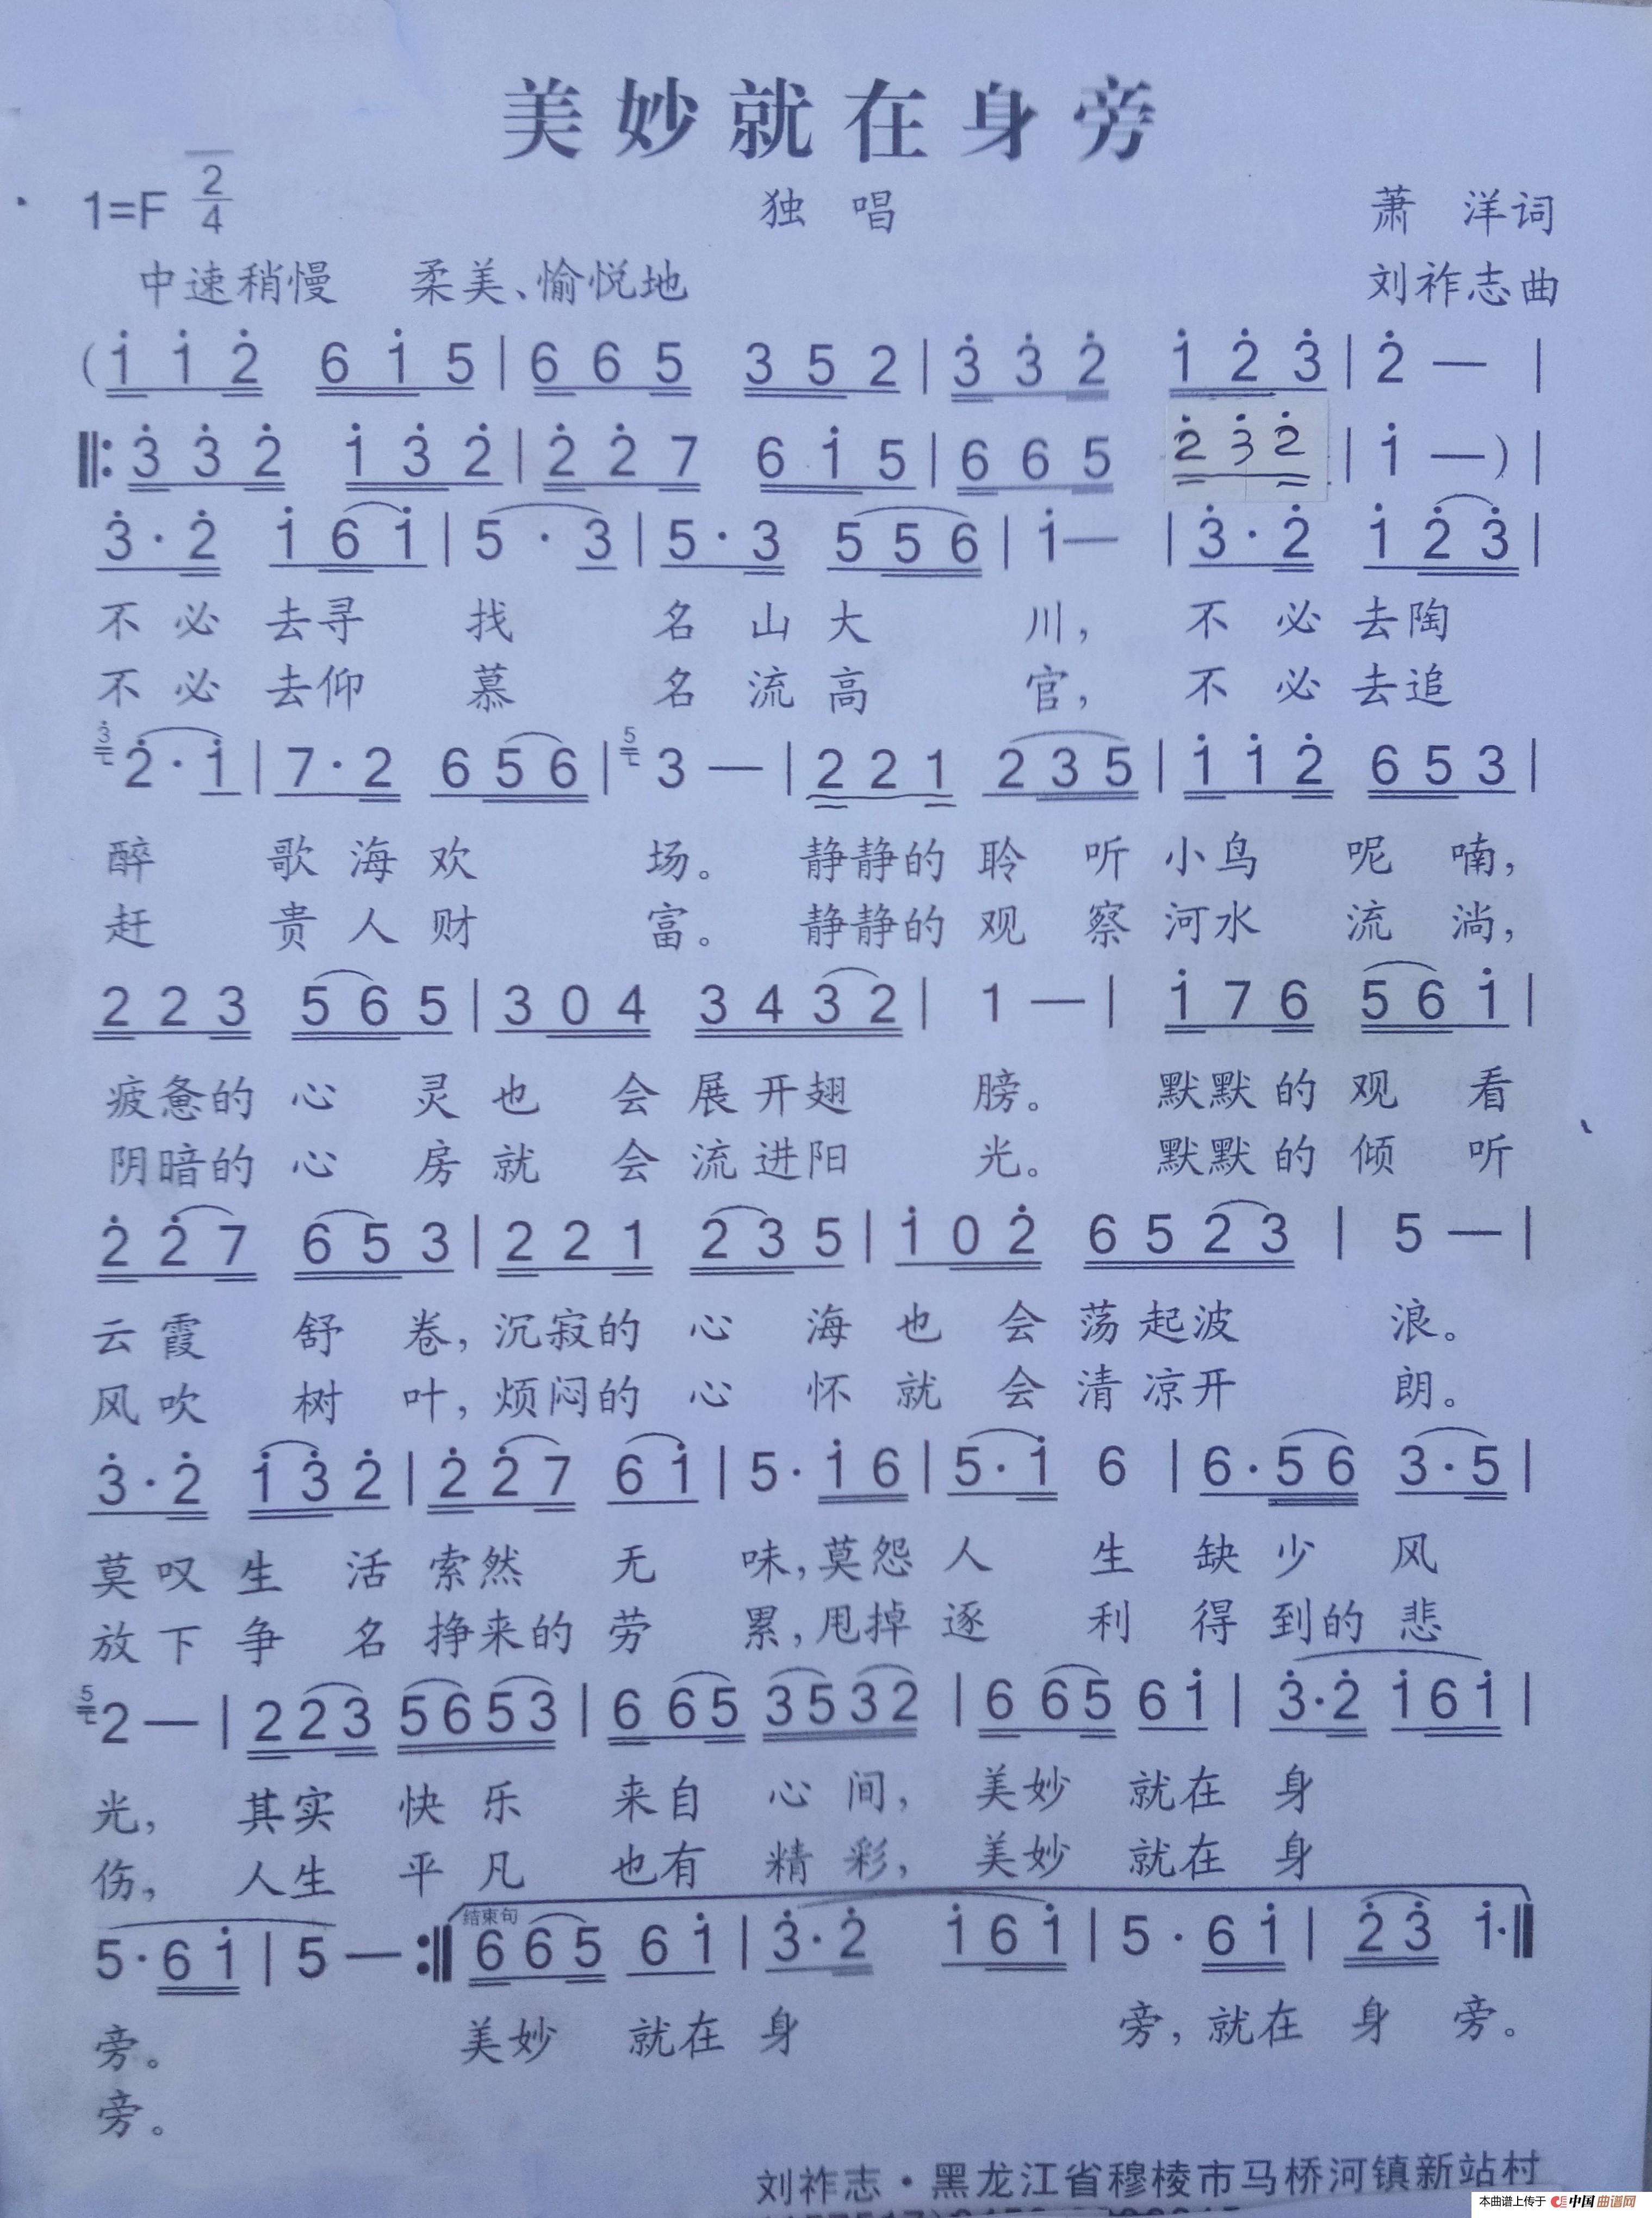 美妙就在身旁
1=F 2/4 独唱 萧洋词
中速稍慢 柔美、愉悦地 刘祚志曲
(i̇ i̇ 2̇ 6 i̇ 5 | 6 6 5 3 5 2 | 3̇ 3̇ 2̇ i̇ 2̇ 3̇ | 2̇ — |
‖: 3̇ 3̇ 2̇ i̇ 3̇ 2̇ | 2̇ 2̇ 7 6 i̇ 5 | 6 6 5 2̇ 3̇ 2̇ | i̇ — ) |
3̇ · 2̇ i̇ 6 i̇ | 5 · 3 | 5 · 3 5 5 6 | i̇ — | 3̇ · 2̇ i̇ 2̇ 3̇ |
不必去寻找名山大川，不必去陶
不必去仰慕名流高官，不必去追
3̇ 2̇ · i̇ | 7 · 2 6 5 6 | 5 3 — | 2 2 1 2 3 5 | i̇ i̇ 2̇ 6 5 3 |
醉歌海欢场。静静的聆听小鸟呢喃，
赶贵人财富。静静的观察河水流淌，
2 2 3 5 6 5 | 3 0 4 3 4 3 2 | 1 — | i̇ 7 6 5 6 i̇ |
疲惫的心灵也会展开翅膀。默默的观看
阴暗的心房就会流进阳光。默默的倾听
2̇ 2̇ 7 6 5 3 | 2 2 1 2 3 5 | i̇ 0 2̇ 6 5 2 3 | 5 — |
云霞舒卷，沉寂的心海也会荡起波浪。
风吹树叶，烦闷的心怀就会清凉开朗。
3̇ · 2̇ i̇ 3̇ 2̇ | 2̇ 2̇ 7 6 i̇ | 5 · i̇ 6 | 5 · i̇ 6 | 6 · 5 6 3 · 5 |
莫叹生活索然无味，莫怨人生缺少风
放下争名挣来的劳累，甩掉逐利得到的悲
5 2 — | 2 2 3 5 6 5 3 | 6 6 5 3 5 3 2 | 6 6 5 6 i̇ | 3̇ · 2̇ i̇ 6 i̇ |
光，其实快乐来自心间，美妙就在身
伤，人生平凡也有精彩，美妙就在身
结束句
5 · 6 i̇ | 5 — :‖ 6 6 5 6 i̇ | 3̇ · 2̇ i̇ 6 i̇ | 5 · 6 i̇ | 2̇ 3̇ i̇ · ‖
旁。美妙就在身旁，就在身旁。
旁。
刘祚志·黑龙江省穆棱市马桥河镇新站村
本曲谱上传于 中国曲谱网